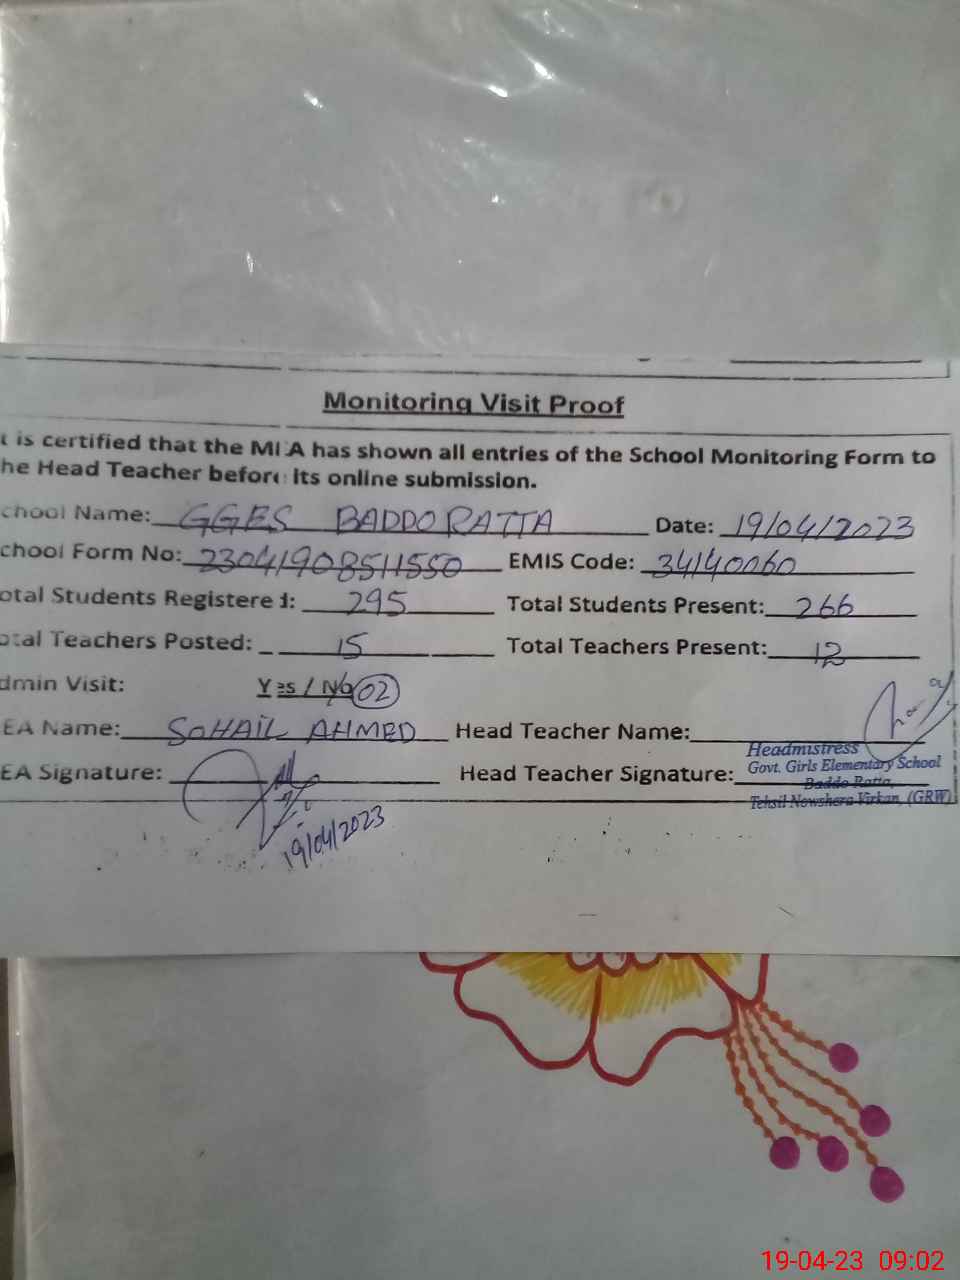 Monitoring Visit Proof
t is certified that the MEA has shown all entries of the School Monitoring Form to
he Head Teacher before its online submission.
chool Name: GGES BADDO RATTA Date: 19/04/2023
chool Form No: 23041908511550 EMIS Code: 34140060
otal Students Registered: 295 Total Students Present: 266
otal Teachers Posted: 15 Total Teachers Present: 12
dmin Visit: Yes / No 02
EA Name: SOHAIL AHMED Head Teacher Name:
EA Signature: Head Teacher Signature:
Headmistress
Govt. Girls Elementary School
Baddo Ratta,
Tehsil Nowshera Virkan, (GRW)
19/04/2023
19-04-23 09:02